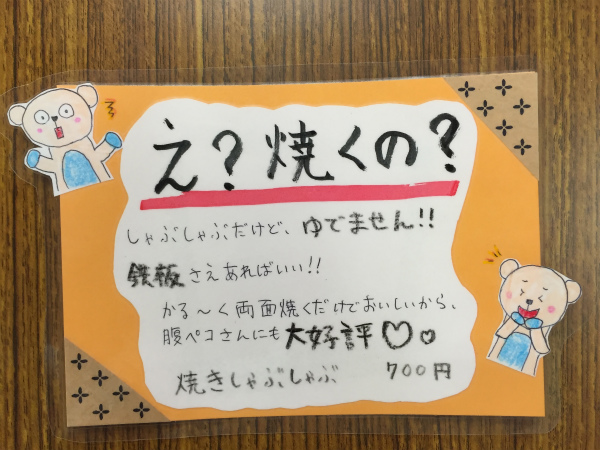 え?焼くの?
しゃぶしゃぶだけど、ゆでません!!
鉄板さえあればいい!!
かる〜く両面焼くだけでおいしいから、
腹ペコさんにも大好評♡♡
焼きしゃぶしゃぶ 700円